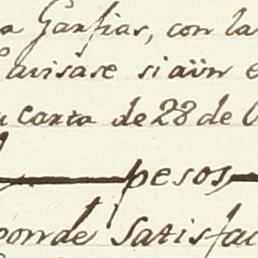 a Garfias, con la
avisase si aün e
carta de 28 de
pesos
ponde satisfac